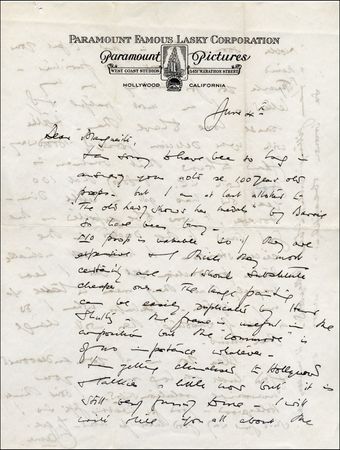 PARAMOUNT FAMOUS LASKY CORPORATION
Paramount Pictures
WEST COAST STUDIOS 5451 MARATHON STREET
HOLLYWOOD CALIFORNIA
June 4th
Dear Marguerite,
I am sorry I have been so long in
answering your note re 100 year old
props. but I am at last attached to
"The old lady shows her medals" by Barrie
so have been busy.
No prop is valuable so if they are
expensive & I think they most
certainly are I should substitute
cheaper ones - The large painting
can be easily duplicated by
. The frame is useful in the
composition but the commode is
of no importance whatever.
I'm getting climatized to Hollywood
& talkies a little now but it is
still very funny. I will
write you all about the